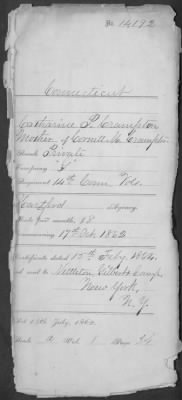 No. 14192
Connecticut
Catharine P. Crampton
Mother of Corritt M. Crampton
Rank Private
Company "I"
Regiment 14th Conn Vols.
Hartford Agency
Rate per month $8
Commencing 17th Oct. 1862
Certificate dated 15th Feby. 1864
and sent to Nettleton Gilbert & Camp
New York,
N.Y.
Act 14th July, 1862.
Book A Vol. 1 Page 34